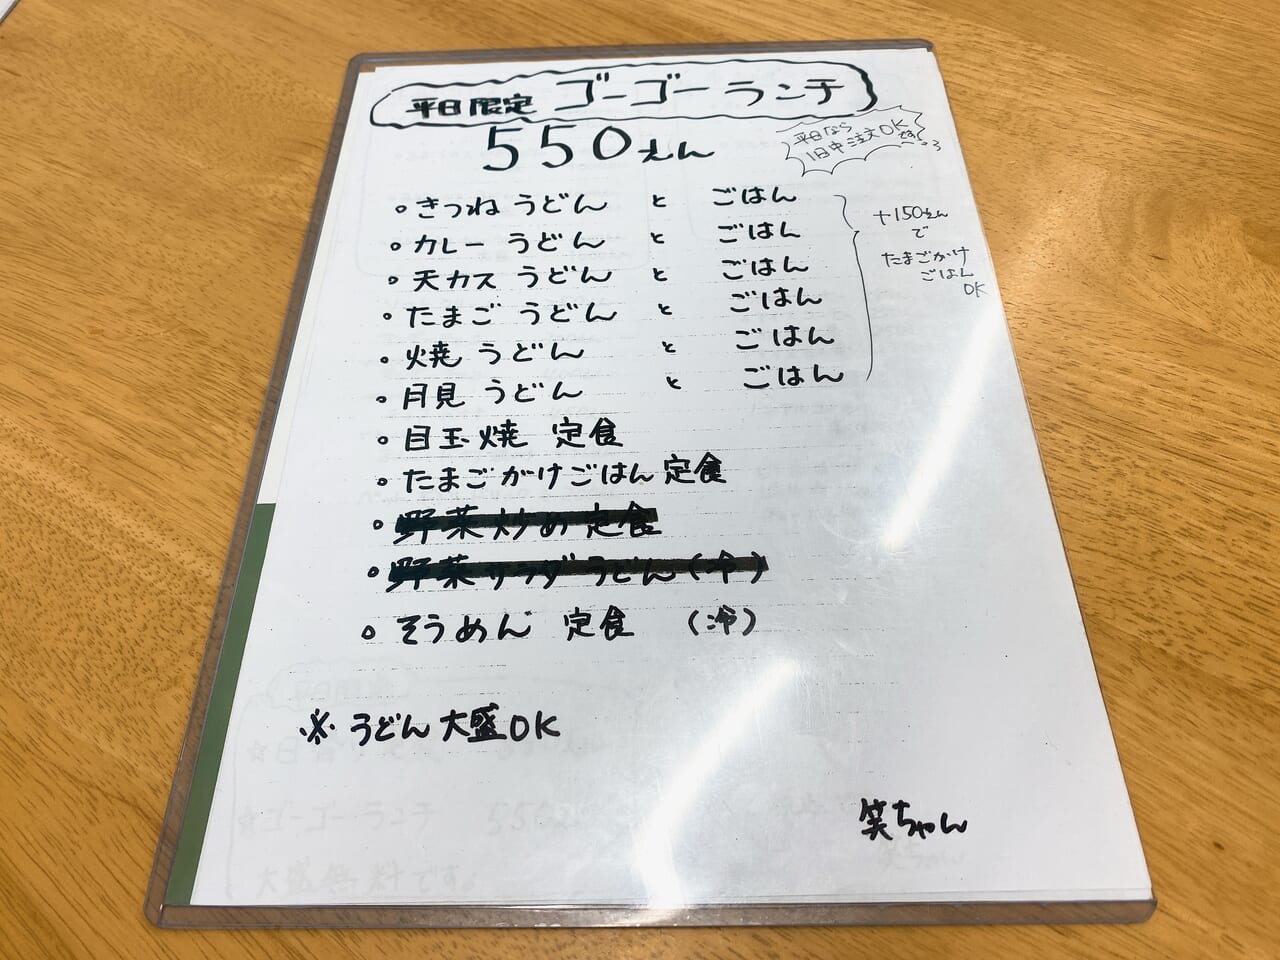 平日限定 ゴーゴーランチ
550えん
平日なら
1日中注文OK
です。
。きつねうどん と ごはん
。カレーうどん と ごはん
。天カスうどん と ごはん
。たまごうどん と ごはん
。焼うどん と ごはん
。月見うどん と ごはん
+150えん
で
たまごがけ
ごはん
OK
。目玉焼 定食
。たまごがけごはん定食
。野菜炒め定食
。野菜サラダうどん(冷)
。そうめん 定食 (冷)
※うどん大盛OK
笑ちゃん
☆ゴーゴーランチ 550
大盛無料です。